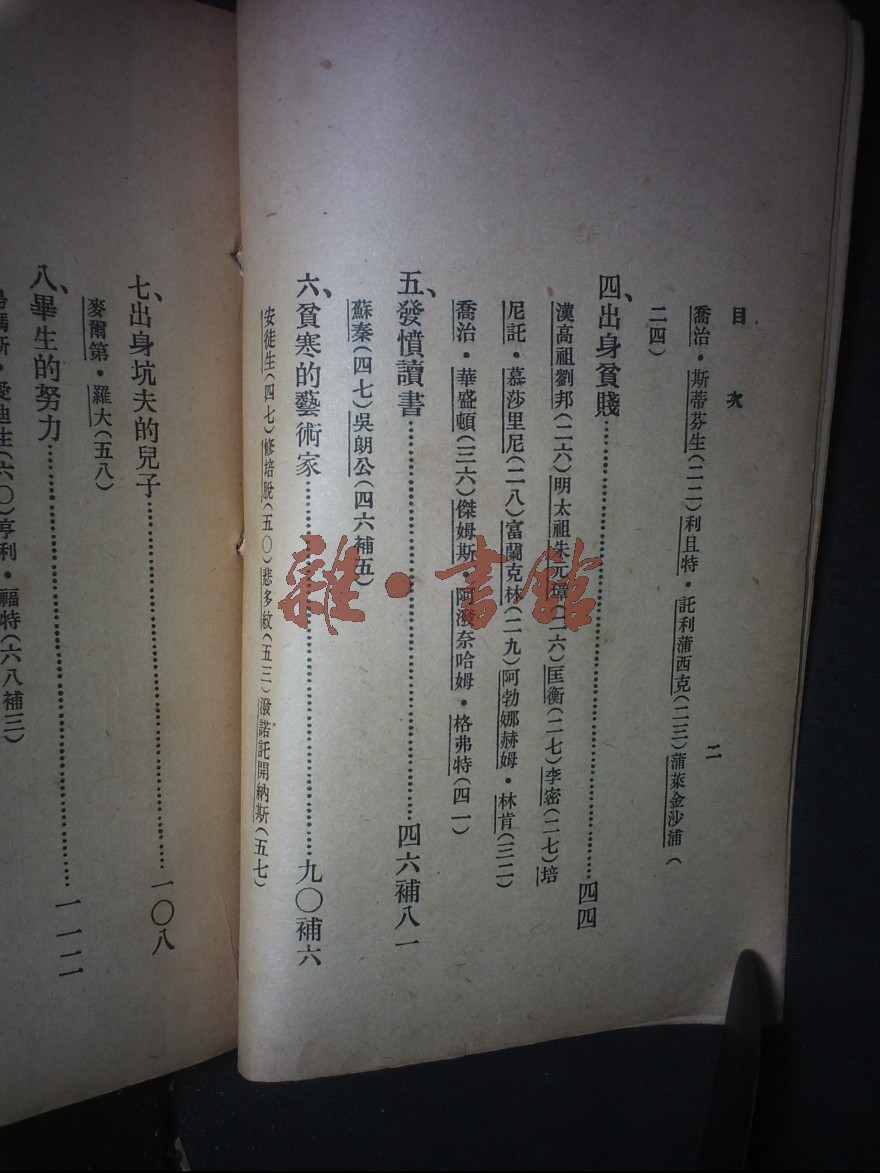 目次
二
喬治・斯蒂芬生(二二)利且特・託利蒲西克(二三)蒲萊金沙浦(
二四)
四、出身貧賤……四四
漢高祖劉邦(二六)明太祖朱元璋(二六)匡衡(二七)李密(二七)培
尼託・慕莎里尼(二八)富蘭克林(二九)阿勃娜赫姆・林肯(三二)
喬治・華盛頓(三六)傑姆斯・阿潑奈哈姆・格弗特(四一)
五、發憤讀書……四六補八一
蘇秦(四七)吳朗公(四六補五)
六、貧寒的藝術家……九〇補六
安徒生(四七)修培脫(五〇)悲多紋(五三)潑諾託開納斯(五七)
七、出身坑夫的兒子……一〇八
麥爾第・羅大(五八)
八、畢生的努力……一一二
斯・愛迪生(六〇)亨利・福特(六八補三)
雜・書館